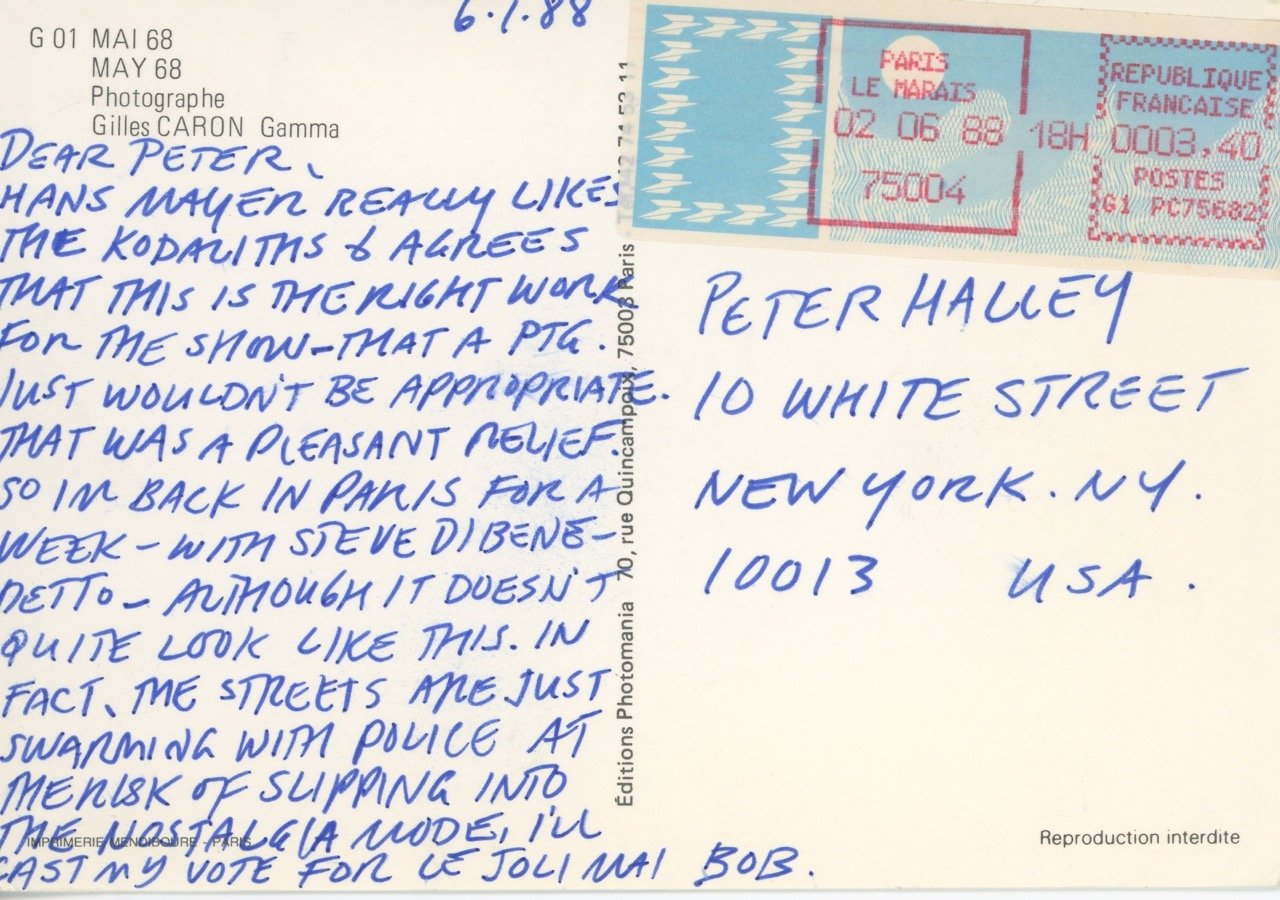 6.1.88
G 01 MAI 68
MAY 68
Photographe
Gilles CARON Gamma
DEAR PETER,
HANS MAYER REALLY LIKES
THE KODALITHS & AGREES
THAT THIS IS THE RIGHT WORK
FOR THE SHOW - THAT A PTG.
JUST WOULDN'T BE APPROPRIATE.
THAT WAS A PLEASANT RELIEF.
SO IM BACK IN PARIS FOR A
WEEK - WITH STEVE DIBENE-
DETTO - ALTHOUGH IT DOESN'T
QUITE LOOK LIKE THIS. IN
FACT, THE STREETS ARE JUST
SWARMING WITH POLICE AT
THE RISK OF SLIPPING INTO
THE NOSTALGIA MODE, I'LL
CAST MY VOTE FOR LE JOLI MAI BOB.
IMPRIMERIE MENDIBOURE - PARIS
Éditions Photomania 70, rue Quincampoix, 75003 Paris
PARIS
LE MARAIS
02 06 88 18H
75004
REPUBLIQUE
FRANCAISE
0003,40
POSTES
G1 PC75682
PETER HALLEY
10 WHITE STREET
NEW YORK. NY.
10013 USA.
Reproduction interdite